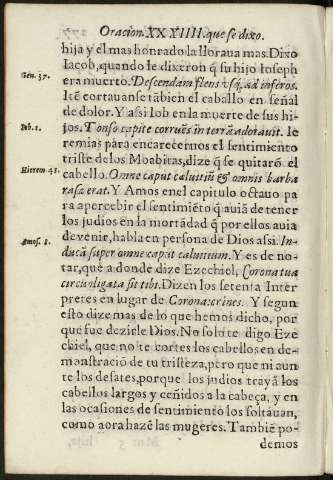 Oracion. XXXIIII. que se dixo.
hija y el mas honrado la lloraua mas. Dixo
Iacob, quando le dixeron q̃ su hijo Ioseph
era muerto. Descendam flens vsq̃; ad inferos.
Gen. 37.
Itẽ cortauanse tãbien el caballo en señal
de dolor. Y assi Iob en la muerte de sus hi-
jos. Tonso capite corruẽs in terrã adorauit. Ie
Iob. 1.
remias para encarecernos el sentimiento
triste de los Moabitas, dize q̃ se quitarõ el
cabello. Omne caput caluitiũ & omnis barba
Hierem 48.
rasa erat. Y Amos en el capitulo octauo pa
ra apercebir el sentimiẽto q̃ auiã de tener
los judios en la mortãdad q̃ por ellos auia
de venir, habla en persona de Dios assi. In-
Amos. 8.
ducã super omne caput caluitium. Y es de no-
tar, que a donde dize Ezechiel, Corona tua
circũligata sit tibi. Dizen los setenta Inter
pretes en lugar de Corona: crines. Y segun
esto dize mas de lo que hemos dicho, por
que fue dezirle Dios. No solo te digo Eze
chiel, que no te cortes los cabellos en de-
monstraciõ de tu tristeza, pero que ni aun
te los desates, porque los judios trayã los
cabellos largos y ceñidos a la cabeça, y en
las ocasiones de sentimiento los soltauan,
como aora hazẽ las mugeres. Tambiẽ po-
demos